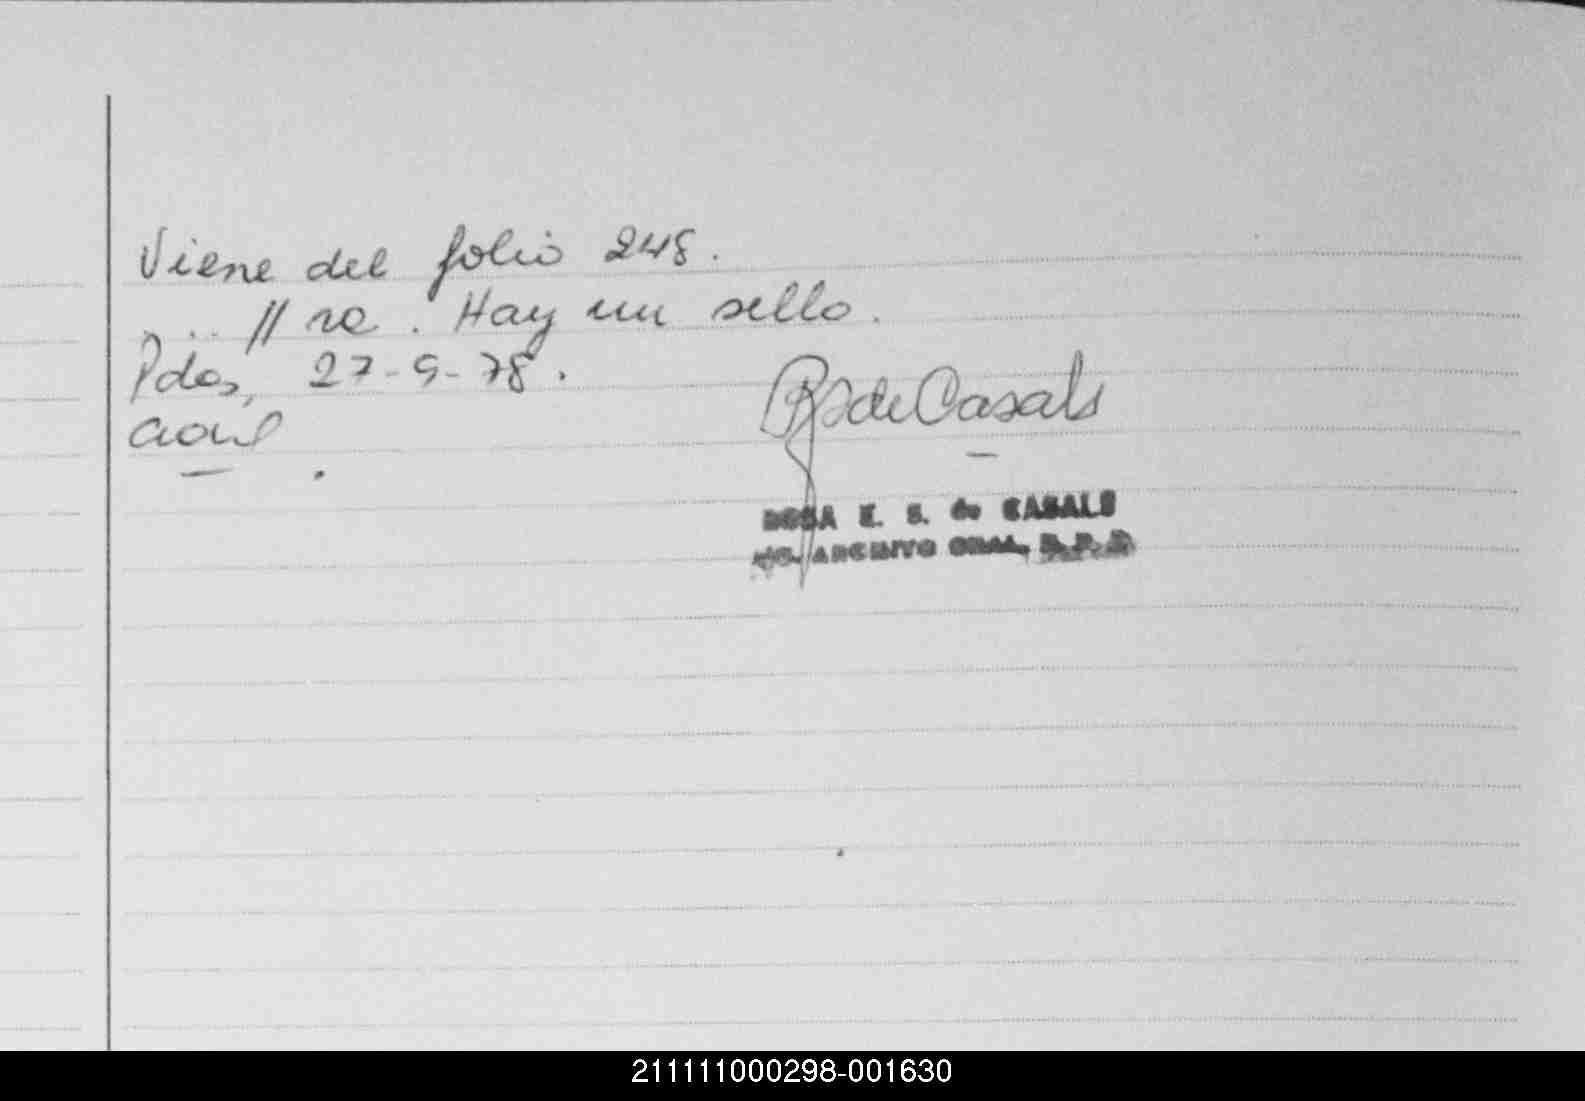 Viene del folio 248.
... // ra. Hay un sello.
Pdas, 27-9-78.
de Casals
ROSA E. S. de CASALS
ARCHIVO GRAL. R. P. P.
211111000298-001630